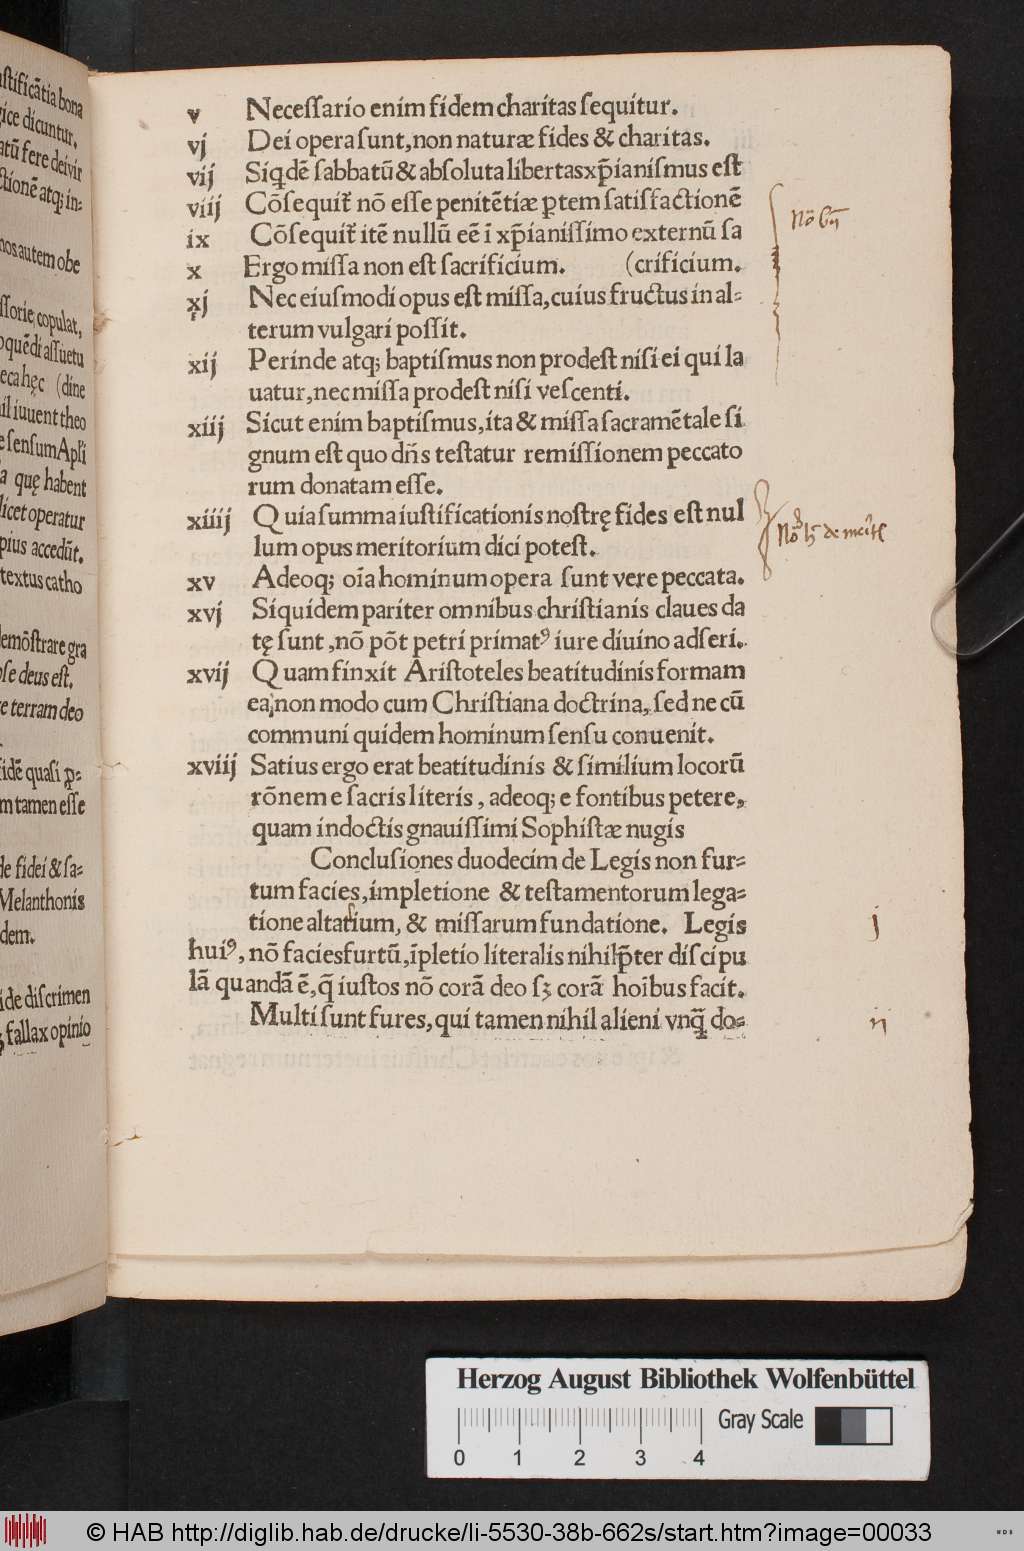 ſtificãtia bona
gice dicuntur.
atũ fere deivir
ctionẽ atq; in-
nos autem obe
ſſorie copulat,
oquẽdi aſſuetu
eca hęc (dine
il iuuent theo
e ſenſum Apłi
a quę habent
licet operatur
pius accedũt.
textus catho
demõſtrare gra
pſe deus eſt.
e terram deo
fidẽ quaſi ꝑ-
m tamen eſſe
de fidei & ſa-
Melanthonis
dem.
ide diſcrimen
fallax opinio
v Neceſſario enim fidem charitas ſequitur.
vj Dei opera ſunt, non naturæ fides & charitas.
vij Siqdẽ ſabbatũ & abſoluta libertas xp̃ianiſmus eſt
viij Cõſequit̃ nõ eſſe penitẽtiæ ꝑtem ſatiſfactionẽ
ix Cõſequit̃ itẽ nullũ eẽ ĩ xp̃ianiſſimo externũ ſa
x Ergo miſſa non eſt ſacrificium. (crificium.
xj Nec eiuſmodi opus eſt miſſa, cuius fructus in al-
terum vulgari poſſit.
xij Perinde atq; baptiſmus non prodeſt niſi ei qui la
uatur, nec miſſa prodeſt niſi veſcenti.
xiij Sicut enim baptiſmus, ita & miſſa ſacramẽtale ſi
gnum eſt quo dñs teſtatur remiſſionem peccato
rum donatam eſſe.
xiiij Quia ſumma iuſtificationis noſtrę fides eſt nul
lum opus meritorium dici poteſt.
xv Adeoq; oĩa hominum opera ſunt vere peccata.
xvj Siquidem pariter omnibus chriſtianis claues da
tę ſunt, nõ põt petri primatꝰ iure diuino adſeri.
xvij Quam finxit Ariſtoteles beatitudinis formam
ea, non modo cum Chriſtiana doctrina, ſed ne cũ
communi quidem hominum ſenſu conuenit.
xviij Satius ergo erat beatitudinis & ſimilium locorũ
rõnem e ſacris literis, adeoq; e fontibus petere,
quam indoctis gnauiſſimi Sophiſtæ nugis
Concluſiones duodecim de Legis non fur-
tum facies, impletione & teſtamentorum lega-
tione altarium, & miſſarum fundatione. Legis
huiꝰ, nõ facies furtũ, ĩpletio literalis nihil p̃ter diſcipu
lã quandã ẽ, q̃ iuſtos nõ corã deo ſꝫ corã hoĩbus facit.
Multi ſunt fures, qui tamen nihil alieni vnq̃ do-
j
ij
Herzog August Bibliothek Wolfenbüttel
Gray Scale
0 1 2 3 4
© HAB http://diglib.hab.de/drucke/li-5530-38b-662s/start.htm?image=00033